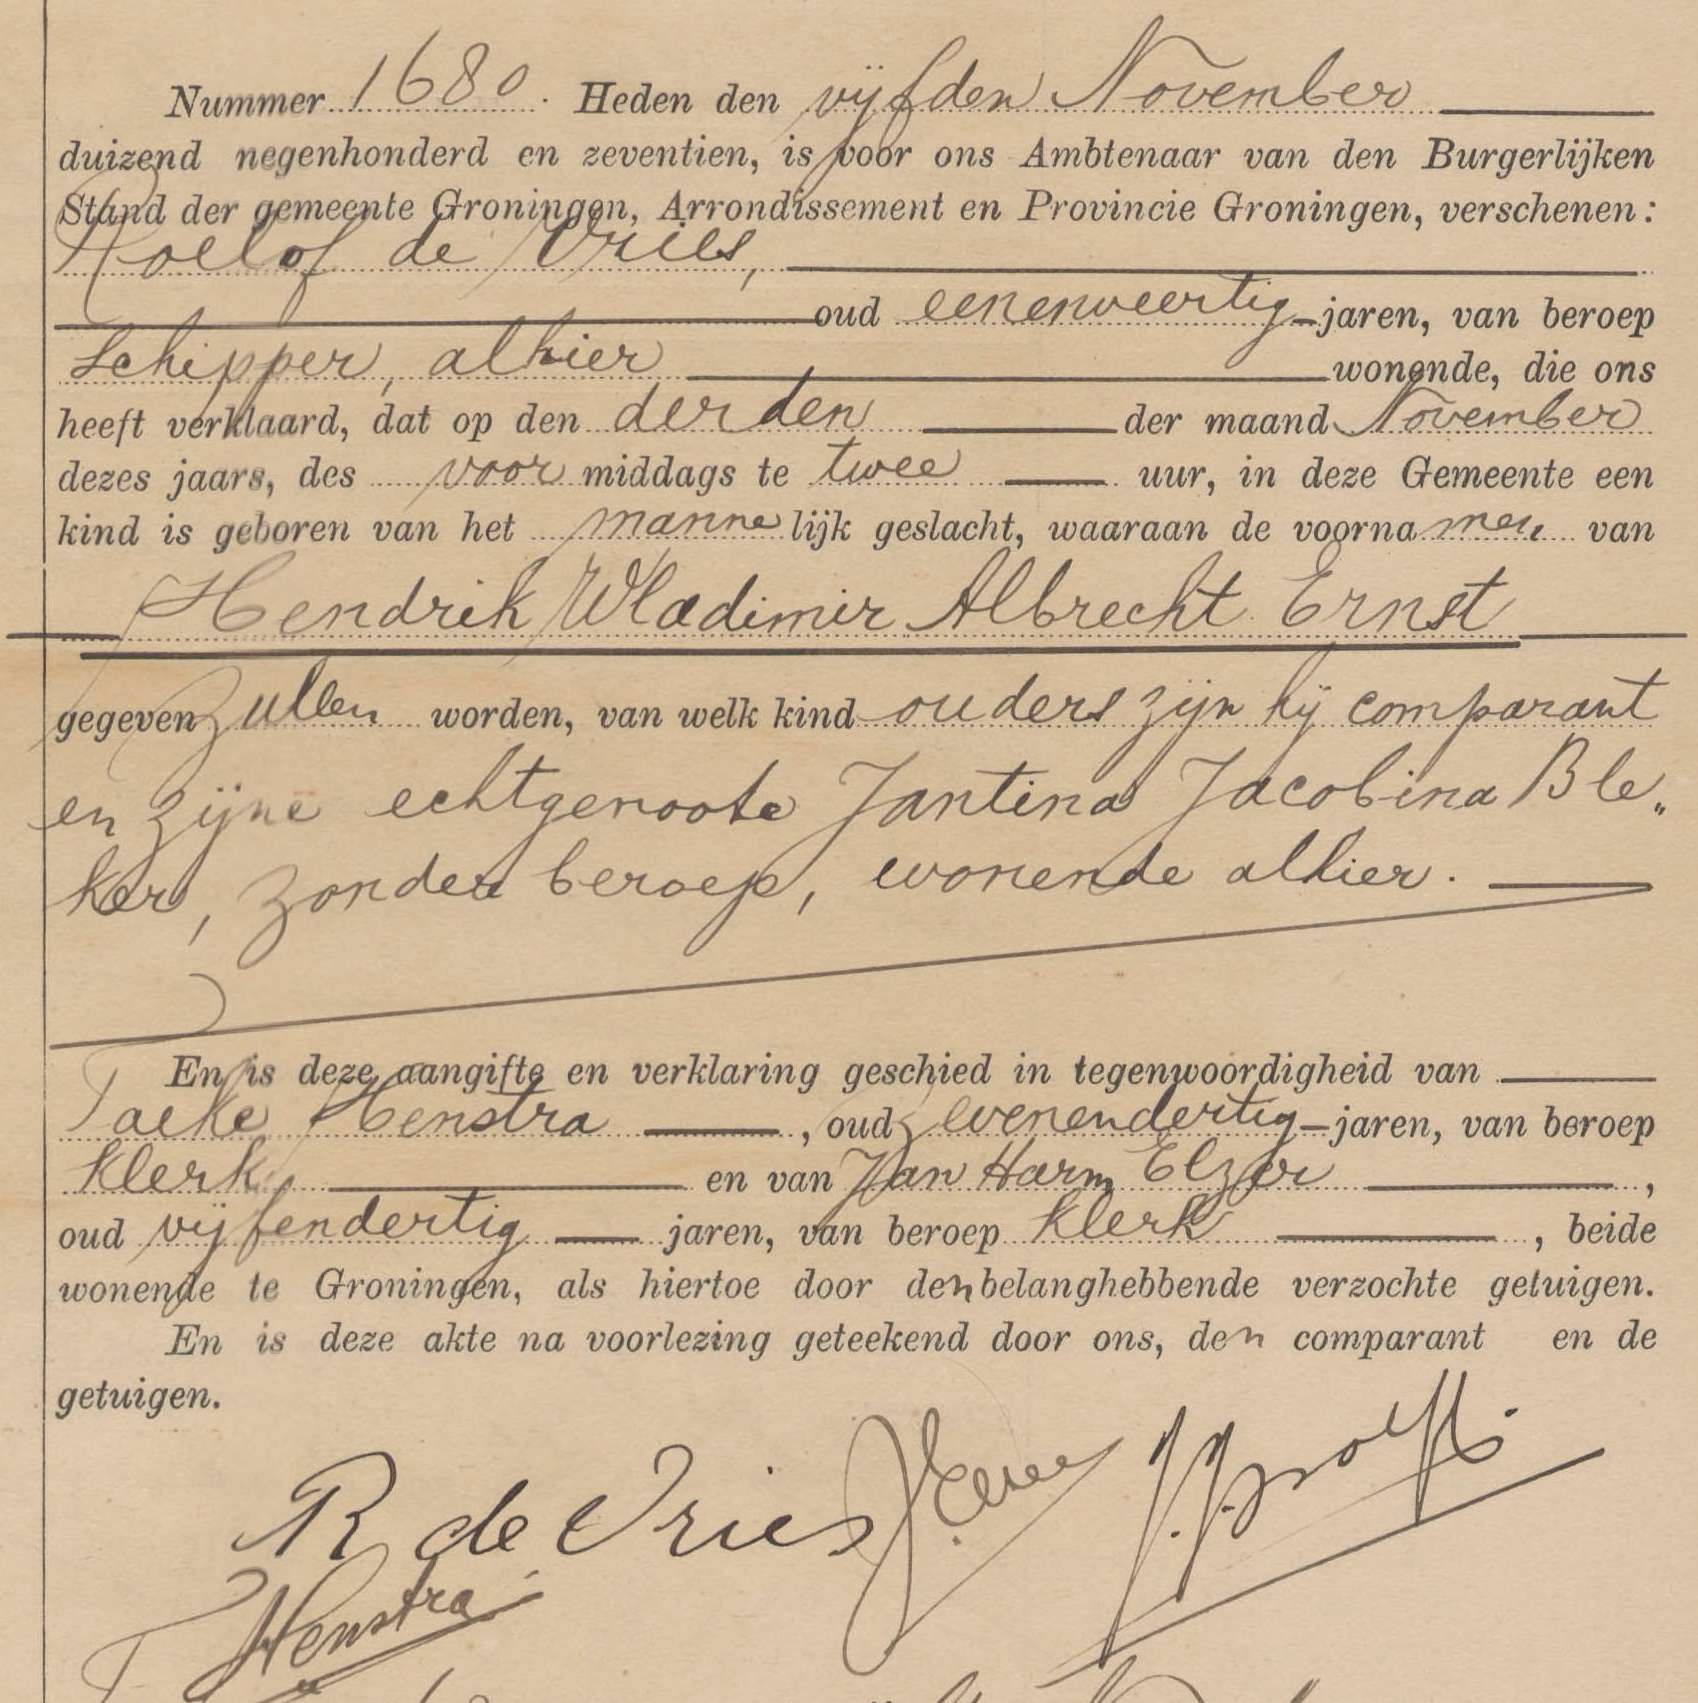 Nummer 1680. Heden den vijfden November
duizend negenhonderd en zeventien, is voor ons Ambtenaar van den Burgerlijken
Stand der gemeente Groningen, Arrondissement en Provincie Groningen, verschenen:
Roelof de Vries,
oud eenenveertig jaren, van beroep
schipper, alhier wonende, die ons
heeft verklaard, dat op den derden der maand November
dezes jaars, des voormiddags te twee uur, in deze Gemeente een
kind is geboren van het mannelijk geslacht, waaraan de voornamen van
Hendrik Wladimir Albrecht Ernst
gegeven zullen worden, van welk kind ouders zijn hij comparant
en zijne echtgenoote Jantina Jacobina Ble„
ker, zonder beroep, wonende alhier.
En is deze aangifte en verklaring geschied in tegenwoordigheid van
Taeke Henstra, oud zevenendertig jaren, van beroep
klerk en van Jan Harm Elzer,
oud vijfendertig jaren, van beroep klerk, beide
wonende te Groningen, als hiertoe door den belanghebbende verzochte getuigen.
En is deze akte na voorlezing geteekend door ons, den comparant en de
getuigen.
R de Vries
Henstra